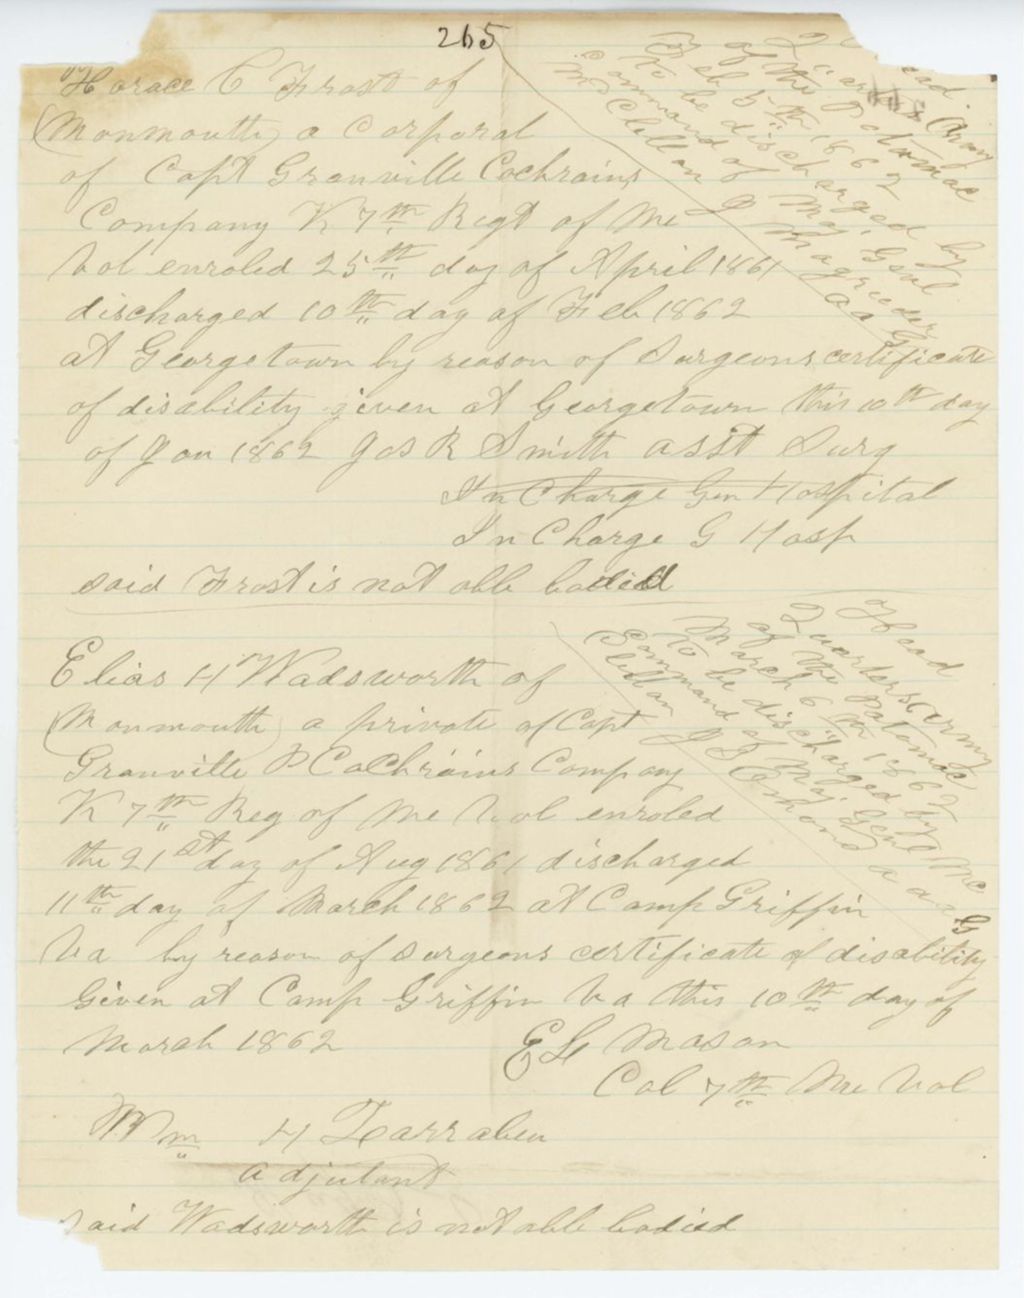 265
Horace C Frost of
(Monmouth) a Corporal
of Capt Granville Cochrains
Company K 7th Regt of Me
Vol enroled 25th day of April 1861
discharged 10th day of Feb 1862
at Georgetown by reason of Surgeons certificate
of disability given at Georgetown this 10th day
of Jan 1862 Jos R Smith asst Surg
In Charge Gen Hospital
In Charge G Hosp
said Frost is not able bodied
ead
Quar Army
of the Potomac
Feb 5th 1862
To be discharged by
command of Maj. Genl
McClellan J Magruder
a a G
Elias H Wadsworth of
(Monmouth) a private of Capt
Granville P Cochrains Company
K 7th Reg of Me Vol enroled
the 21st day of Aug 1861 discharged
11th day of March 1862 at Camp Griffin
Va by reason of surgeons certificate of disability
Given at Camp Griffin Va this 10th day of
March 1862
E G Mason
Col 7th Me Vol
Wm H Larraben
adjutant
said Wadsworth is not able bodied
Head
Quarters Army
of the Potomac
March 6th 1862
To be discharged by
Command of Maj. Genl Mc
Clellan
a a a G